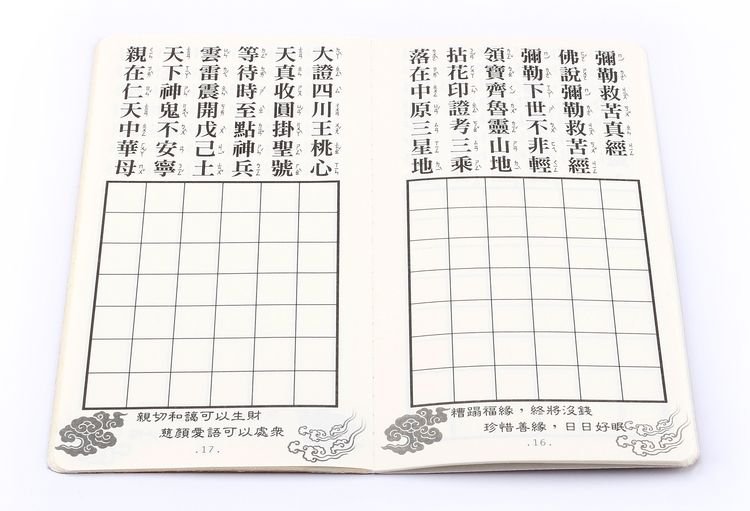 彌勒救苦真經
佛說彌勒救苦經
彌勒下世不非輕
領寶齊魯靈山地
拈花印證考三乘
落在中原三星地
糟蹋福緣，終將沒錢
珍惜善緣，日日好眠
.16.
大證四川王桃心
天真收圓掛聖號
等待時至點神兵
雲雷震開戊己土
天下神鬼不安寧
親在仁天中華母
親切和謁可以生財
慈顏愛語可以處眾
.17.